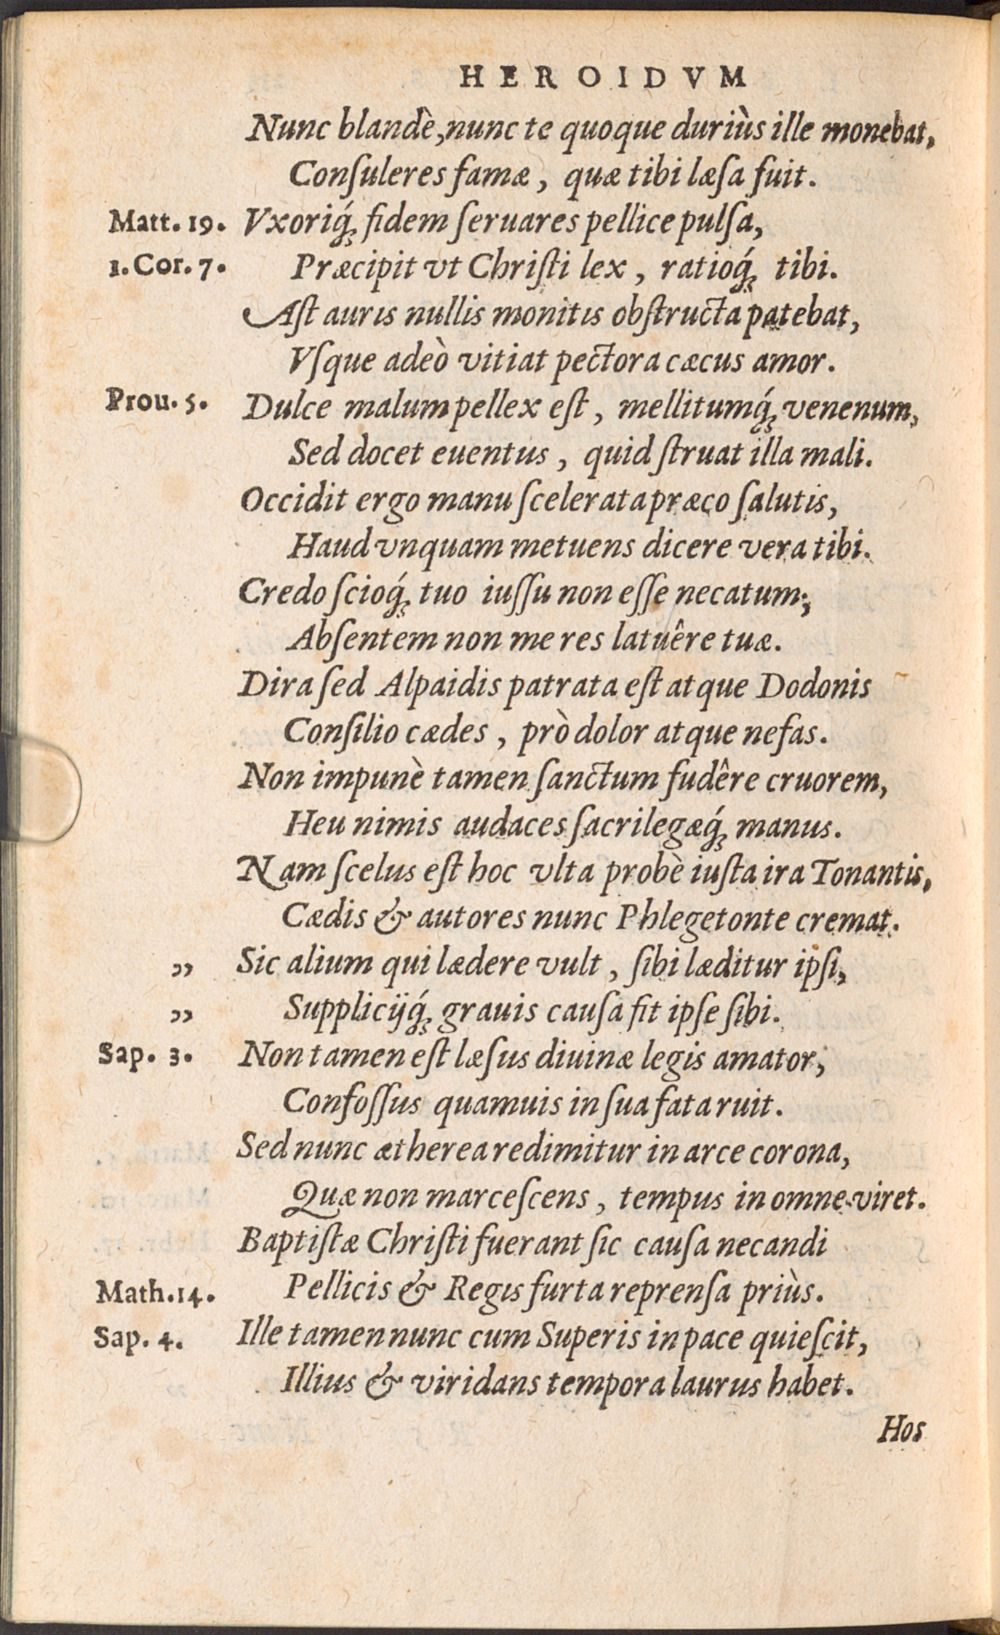 HEROIDVM
Nunc blandè, nunc te quoque duriùs ille monebat,
Conſuleres famæ, quæ tibi læſa fuit.
Matt. 19. Vxoriq́ꝫ fidem ſeruares pellice pulſa,
1. Cor. 7. Præcipit vt Chriſti lex, ratioq́ꝫ tibi.
Aſt auris nullis monitis obſtructa patebat,
Vſque adeò vitiat pectora cæcus amor.
Prou. 5. Dulce malum pellex eſt, mellitumq́ꝫ venenum,
Sed docet euentus, quid ſtruat illa mali.
Occidit ergo manu ſcelerata præco ſalutis,
Haud vnquam metuens dicere vera tibi.
Credo ſcioq́ꝫ tuo iuſſu non eſſe necatum;
Abſentem non me res latuêre tuæ.
Dira ſed Alpaidis patrata eſt atque Dodonis
Conſilio cædes, prò dolor atque nefas.
Non impunè tamen ſanctum fudêre cruorem,
Heu nimis audaces ſacrilegæq́ꝫ manus.
Nam ſcelus eſt hoc vlta probè iuſta ira Tonantis,
Cædis & autores nunc Phlegetonte cremat.
„ Sic alium qui lædere vult, ſibi læditur ipſi,
„ Supplicijq́ꝫ grauis cauſa fit ipſe ſibi.
Sap. 3. Non tamen eſt læſus diuinæ legis amator,
Confoſſus quamuis in ſua fata ruit.
Sed nunc ætherea redimitur in arce corona,
Quæ non marceſcens, tempus in omne viret.
Baptiſtæ Chriſti fuerant ſic cauſa necandi
Math. 14. Pellicis & Regis furta reprenſa priùs.
Sap. 4. Ille tamen nunc cum Superis in pace quieſcit,
Illius & viridans tempora laurus habet.
Hos